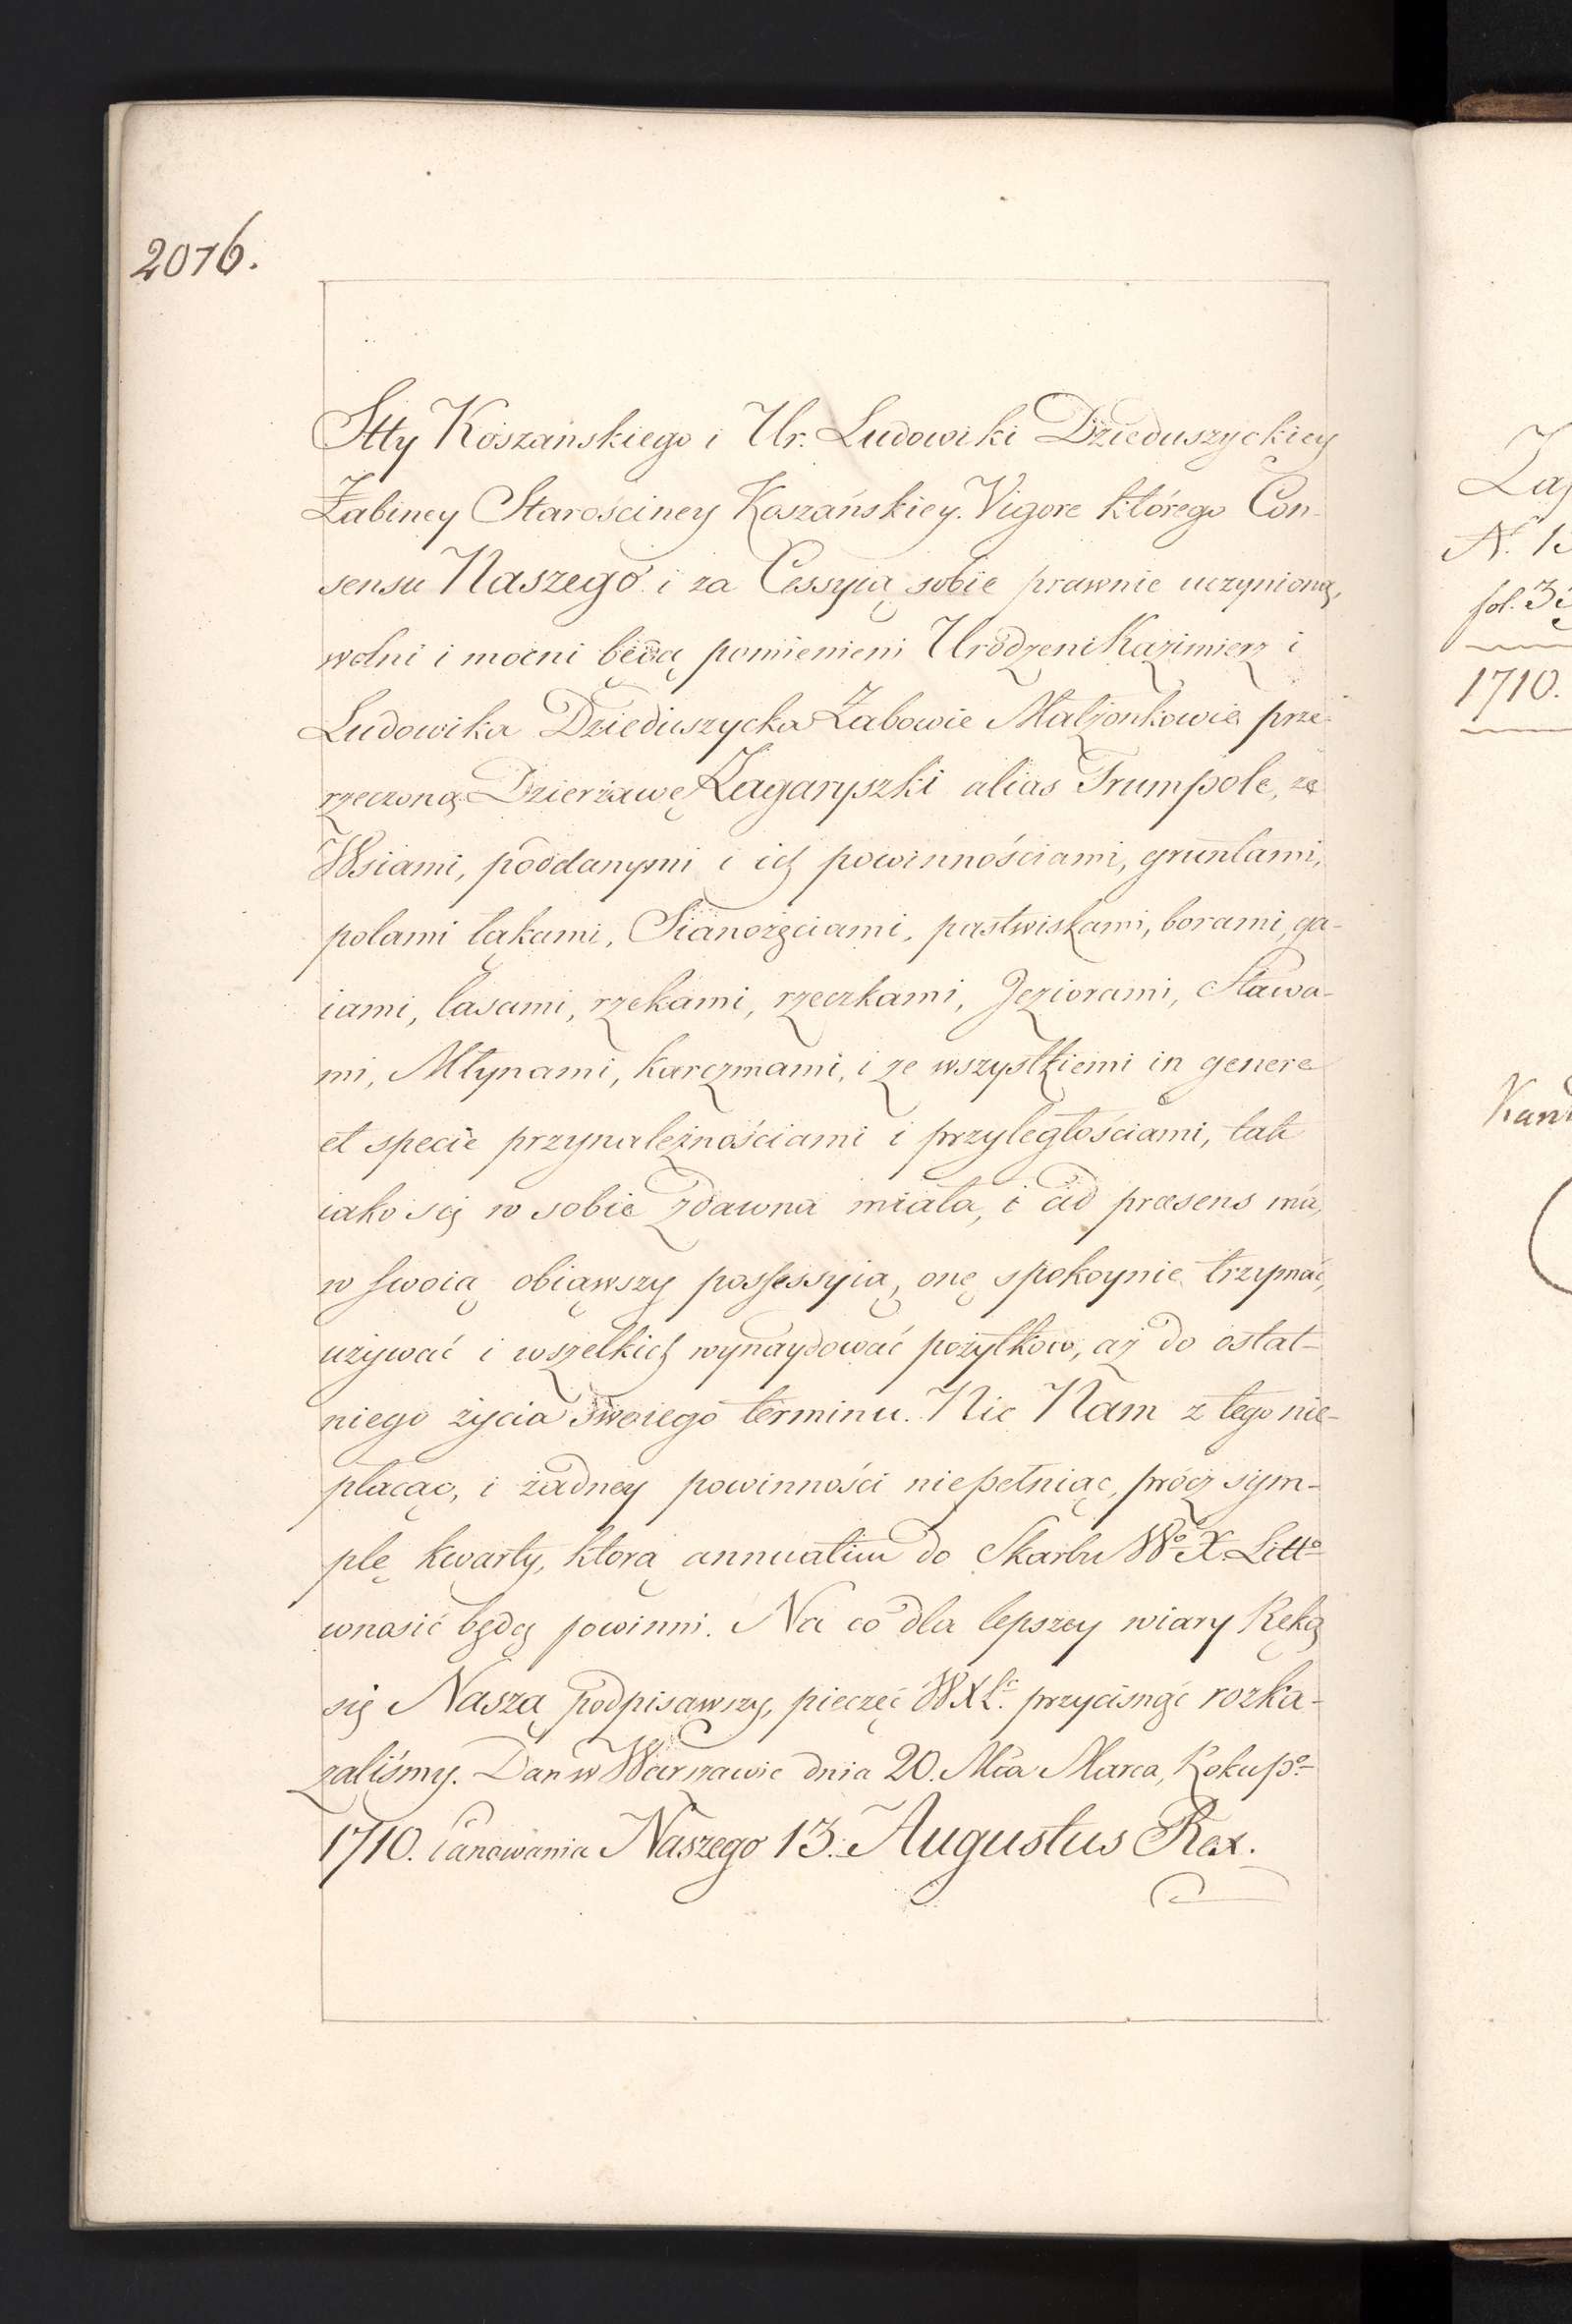 2076.
Stty Koszańskiego i Ur. Ludowiki Dzieduszyckiey
Żabiney Starościney Koszańskiey. Vigore którego Con-
sensu Naszego i za Cessyią sobie prawnie uczynioną,
wolni i mocni będą pomienieni Urodzeni Kazimierz i
Ludowika Dzieduszycka Żabowie Małżonkowie prze-
rzeczoną Dzierżawę Żagaryszki alias Trumpole, ze
Wsiami, poddanymi i ich powinnościami, gruntami,
polami łąkami, Sianożęciami, pastwiskami, borami, ga-
iami, lasami, rzekami, rzeczkami, Jeziorami, Stawa-
mi, Młynami, karczmami, i ze wszystkiemi in genere
et specie przynależnościami i przyległościami, tak
iako się w sobie zdawna miała, i ad præsens ma,
w swoią obiąwszy possessyią, onę spokoynie trzymać,
używać i wszelkich wynaydować pożytkow, aż do ostat-
niego życia swoiego terminu. Nic Nam z tego nie-
płacąc, i żadney powinności niepełniąc, prócz sym-
plę kwarty, ktora annuatim do Skarbu Wo X Litto
wnosić będą powinni. Na co dla lepszey wiary Ręką
się Naszą podpisawszy, pieczęć WXLc. przycisnąć rozka-
zaliśmy. Dan w Warszawie dnia 20. Mca Marca, Roku po
1710. Panowania Naszego 13. Augustus Rex.
fol.
1710.